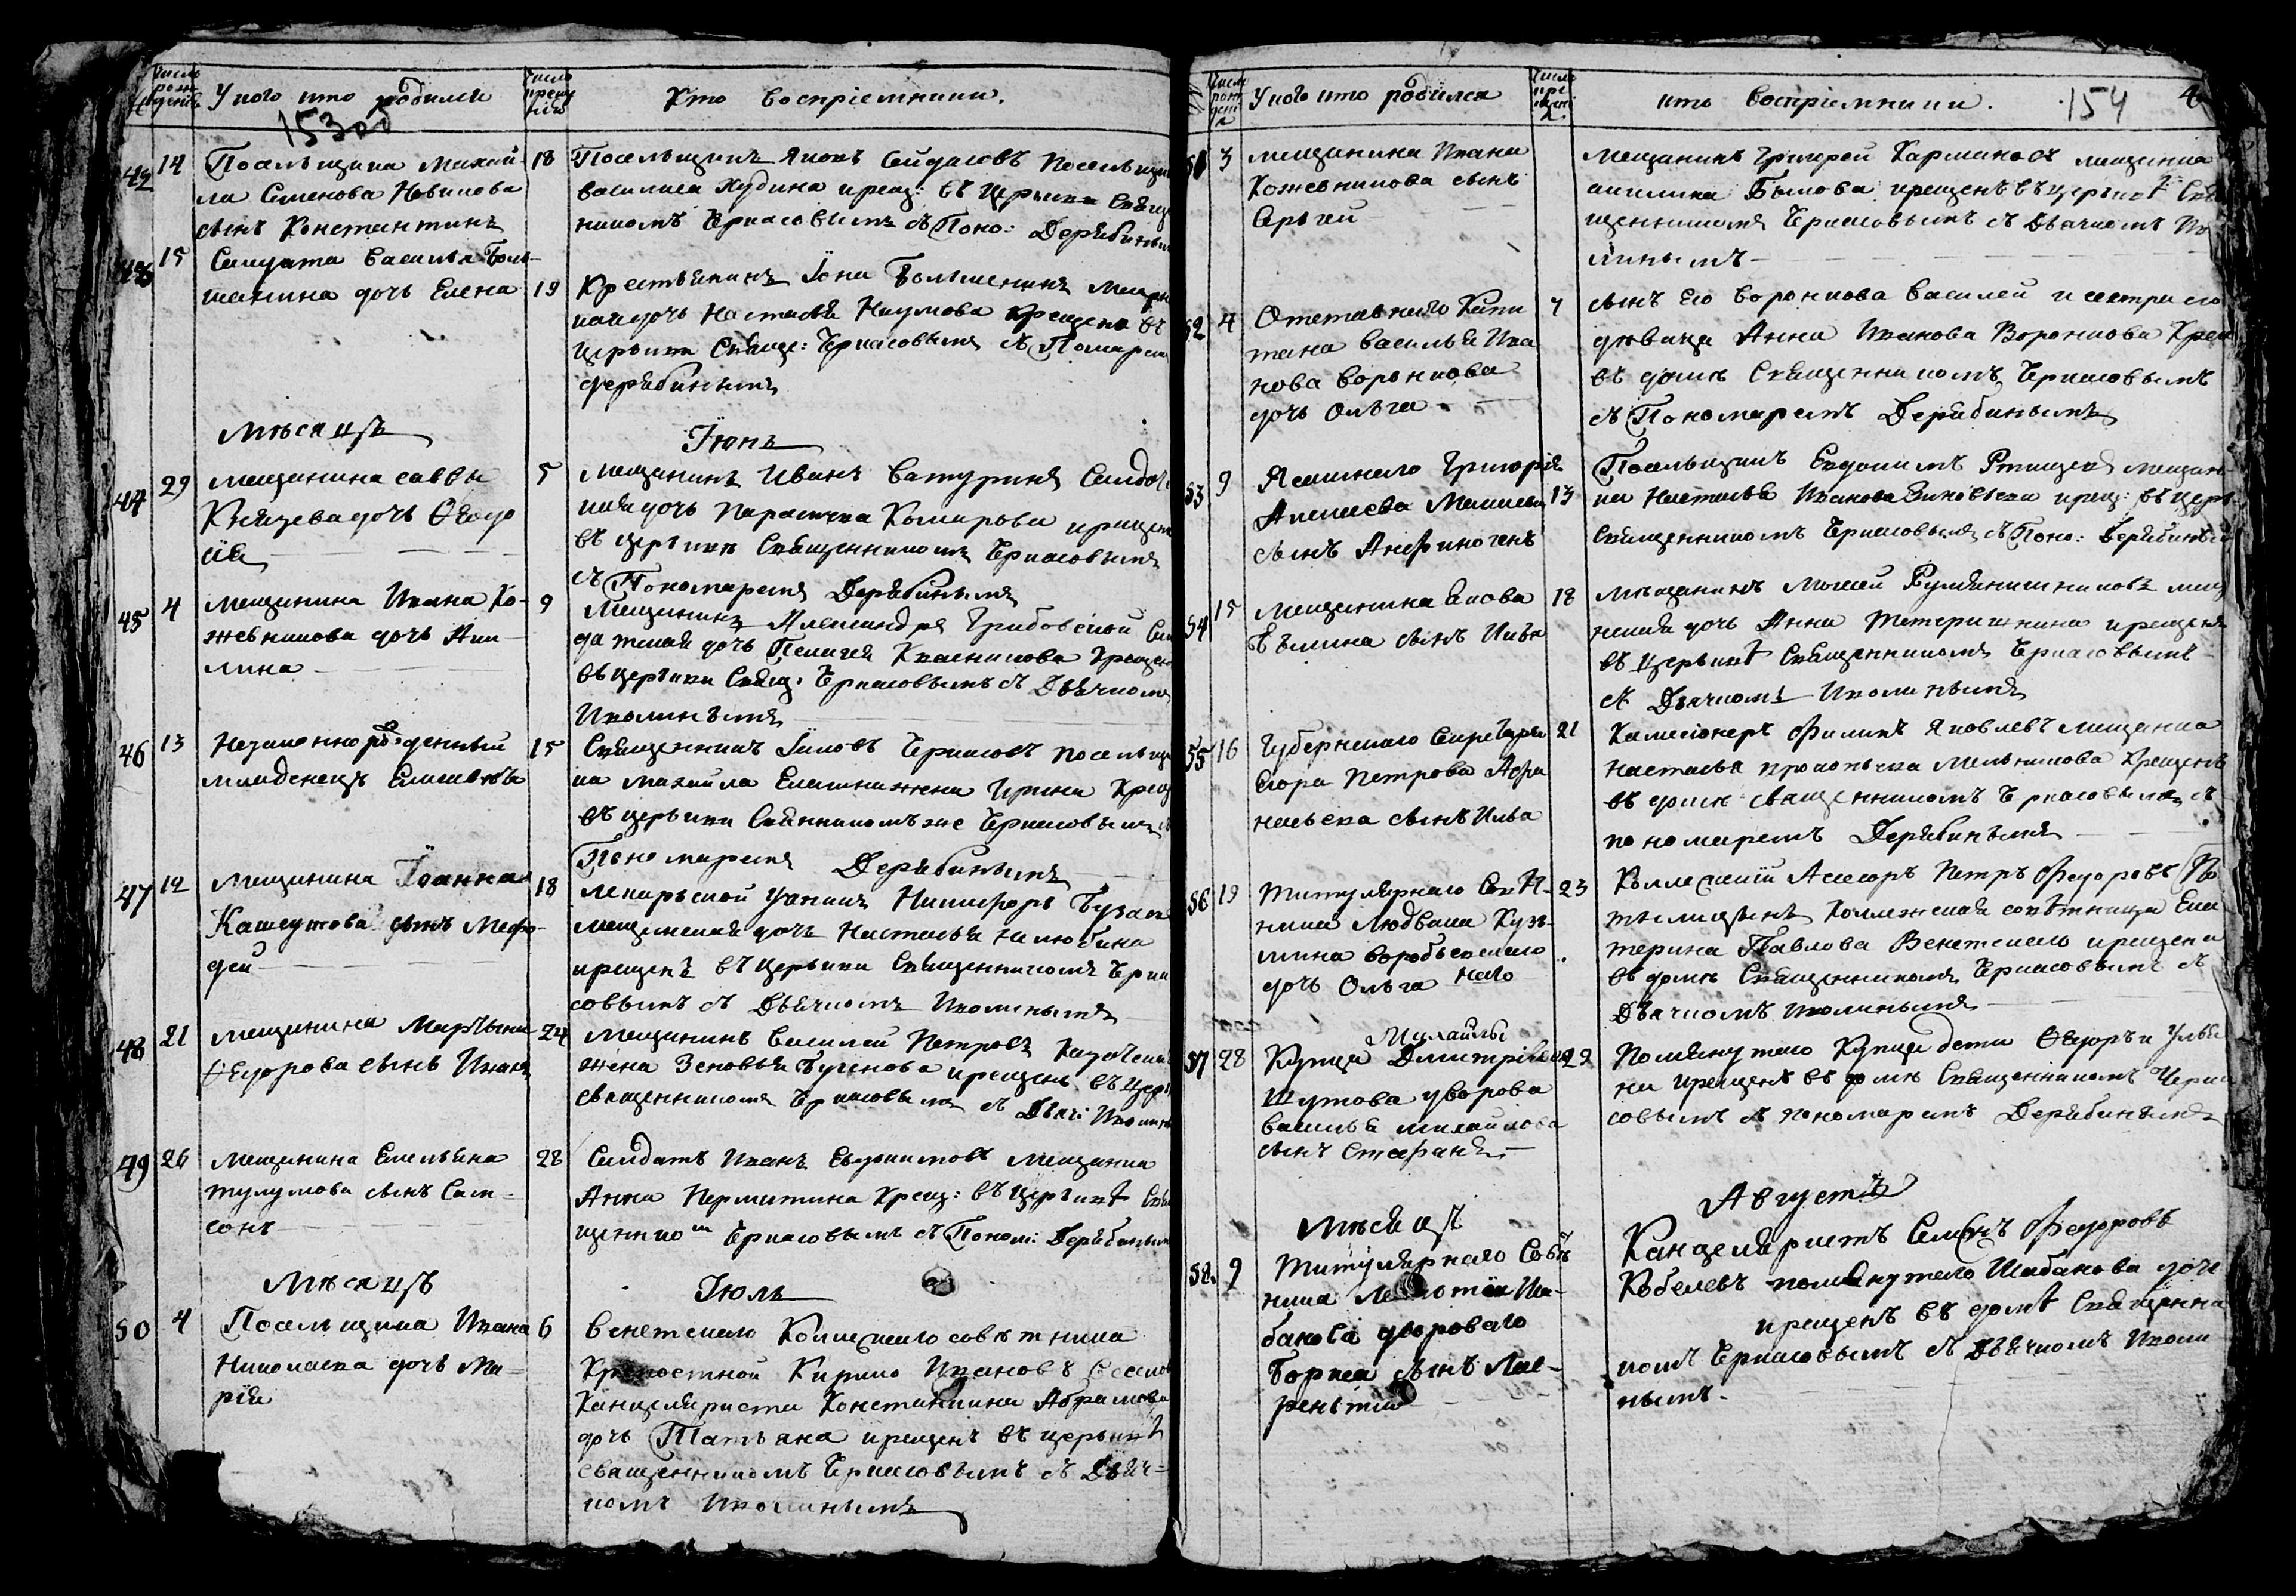 №
Число рождения
У кого кто родился
Число крещения
Кто восприемники.
153об
42
14
Посельщика Михай-
ла Семенова Новикова
сынъ Константинъ
18
Посельщикъ Яковъ Сейдаковъ посельщи
василиса Худина крещ: въ Церькви Свяще
никомъ Черкасовымъ съ Поно: Дерябиным
43
15
Салдата Василья Боль-
шанина дочь Елена
19
Крестьянинъ Iона Большенинъ мещан
ская дочь Настасья Наумова крещена въ
церькви Свяще: Черкасовымъ съ Понаре
дерябинымъ
Мѣсяцъ
Iюнь
44
29
мещанина саввы
Князева дочь Ѳеодо
сiя
5
мещанинъ Иванъ Батуринъ Салдат
ская дочь Парасковья Комарова крещена
въ церькви Священникомъ Черкасовымъ
съ Пономаремъ Дерябинымъ
45
4
мещанина Ивана Ко-
жевникова дочь Аки-
лина
9
Мещанинъ Александръ Грибовской Сал
датская дочь Пелагея Квасникова крещен
въ церькви Свящ: Черкасовымъ съ Дьячкомъ
Иволинымъ
46
13
Незаконнорожденный
младенецъ Елисавета
15
Священникъ Iаковъ Черкасовъ посельщи
ка михайла жена Ирина крещ
въ церькви Свянникомъ же Черкасовымъ съ
Пономаремъ Дерябинымъ
47
12
мещанина Iоанна
Кашкутова сынъ Мефо-
дей
18
Лекарьской Ученикъ Никифоръ
мещанская дочь Настасья Налюбина
крещенъ въ церькви Священникомъ Черка
совымъ съ Дьячкомъ Иволинымъ
48
21
мещанина Мартына
Ѳедорова сынъ Иванъ
24
мещанинъ Василей Петровъ
жена Зеновья Бугенова крещенъ въ цер
священникомъ Черкасовымъ съ Дьяч: Иволин
49
26
мещанина Емельяна
тулумова сынъ Сам-
сонъ
28
Салдатъ Иванъ Евфимовъ мещанка
Анна Пермитина крещ: въ Церьквѣ Свя
щенником Черкасовымъ съ Поном: Дерябинымъ
Мѣсяцъ
Iюль
50
4
Посельщика Ивана
Николаева дочь Ма-
рiя
6
Венетскаго Коллежскаго советника
Крепостной Кирило Ивановъ
Канцеляриста Константина Абрамова
дочь Татьяна крещенъ въ церьквѣ
священникомъ Черкасовымъ съ Дьяч-
комъ Иволинымъ
№
Число рождения
У кого кто родился
Число крещен.
кто восприемники.
154
51
3
мещанина Ивана
Кожевникова сынъ
Сергей
мещанинъ Григорей Кармановъ мещанка
акилина Быкова крещенъ въ церьквѣ Свя
щенникомъ Черкасовымъ съ Дьячкомъ Иво
линымъ
52
4
Отставнаго Капи
тана василья Ива
нова воронцова
дочь Ольга
7
сынъ его воронцова василей и сестра его
девица Анна Иванова Воронцова Крещ
въ доме Священникомъ Черкасовымъ
съ Пономаремъ Дерябинымъ
53
9
Ясашнаго Григорія
Алексеева
сынъ Анфиногенъ
13
Посельщикъ Евдокимъ Ртищевъ мещан
ка Настасья Иванова Зиновьева крещ: въ церь
Священникомъ Черкасовымъ съ Поно: Дерябинымъ
54
15
мещанина Якова
Бѣлина сынъ Илья
18
мѣщанинъ Мосей Румянишниковъ мещ
нская дочь Анна Тетеришнина крещенъ
въ Церьквѣ Священникомъ Черкасовымъ
съ Дьячкомъ Иволинымъ
55
16
Губернскаго Секретаря
Егора Петрова Афа
насьева сынъ Илья
21
Камисiонеръ Филипъ Яковлевъ мещанка
Настасья прокопьева Мельникова крещенъ
въ доме священникомъ Черкасовымъ съ
пономаремъ Дерябинымъ
56
19
Титулярнаго Совѣт-
ника Людвина Кузь-
мина воробьевскаго
дочь Ольга
23
Коллежскiй Асесоръ Петръ Федоровъ По
тылицынъ Коллежская совѣтница Ека
терина Павлова Венетскаго крещена
въ доме Священникомъ Черкасовымъ съ
Дьячкомъ Иволинымъ
57
28
Михайлы
Купца Дмитрiева
Шутова дворова
василья михайлова
сынъ Стефанъ
29
Помянутаго Купца дети Ѳедоръ и Улья
на крещенъ въ доме Священникомъ Черка
совымъ съ пономаремъ Дерябинымъ
Мѣсяцъ
Августъ
58
9
Титулярнаго Совѣт
ника Ша-
банова двороваго
Бориса сынъ Лав-
рентiй
Канцеляристъ Семенъ Федоровъ
Кобелевъ помянутаго Шабанова дочь
крещенъ въ домѣ Священни
комъ Черкасовымъ съ Дьячкомъ Иволи
нымъ